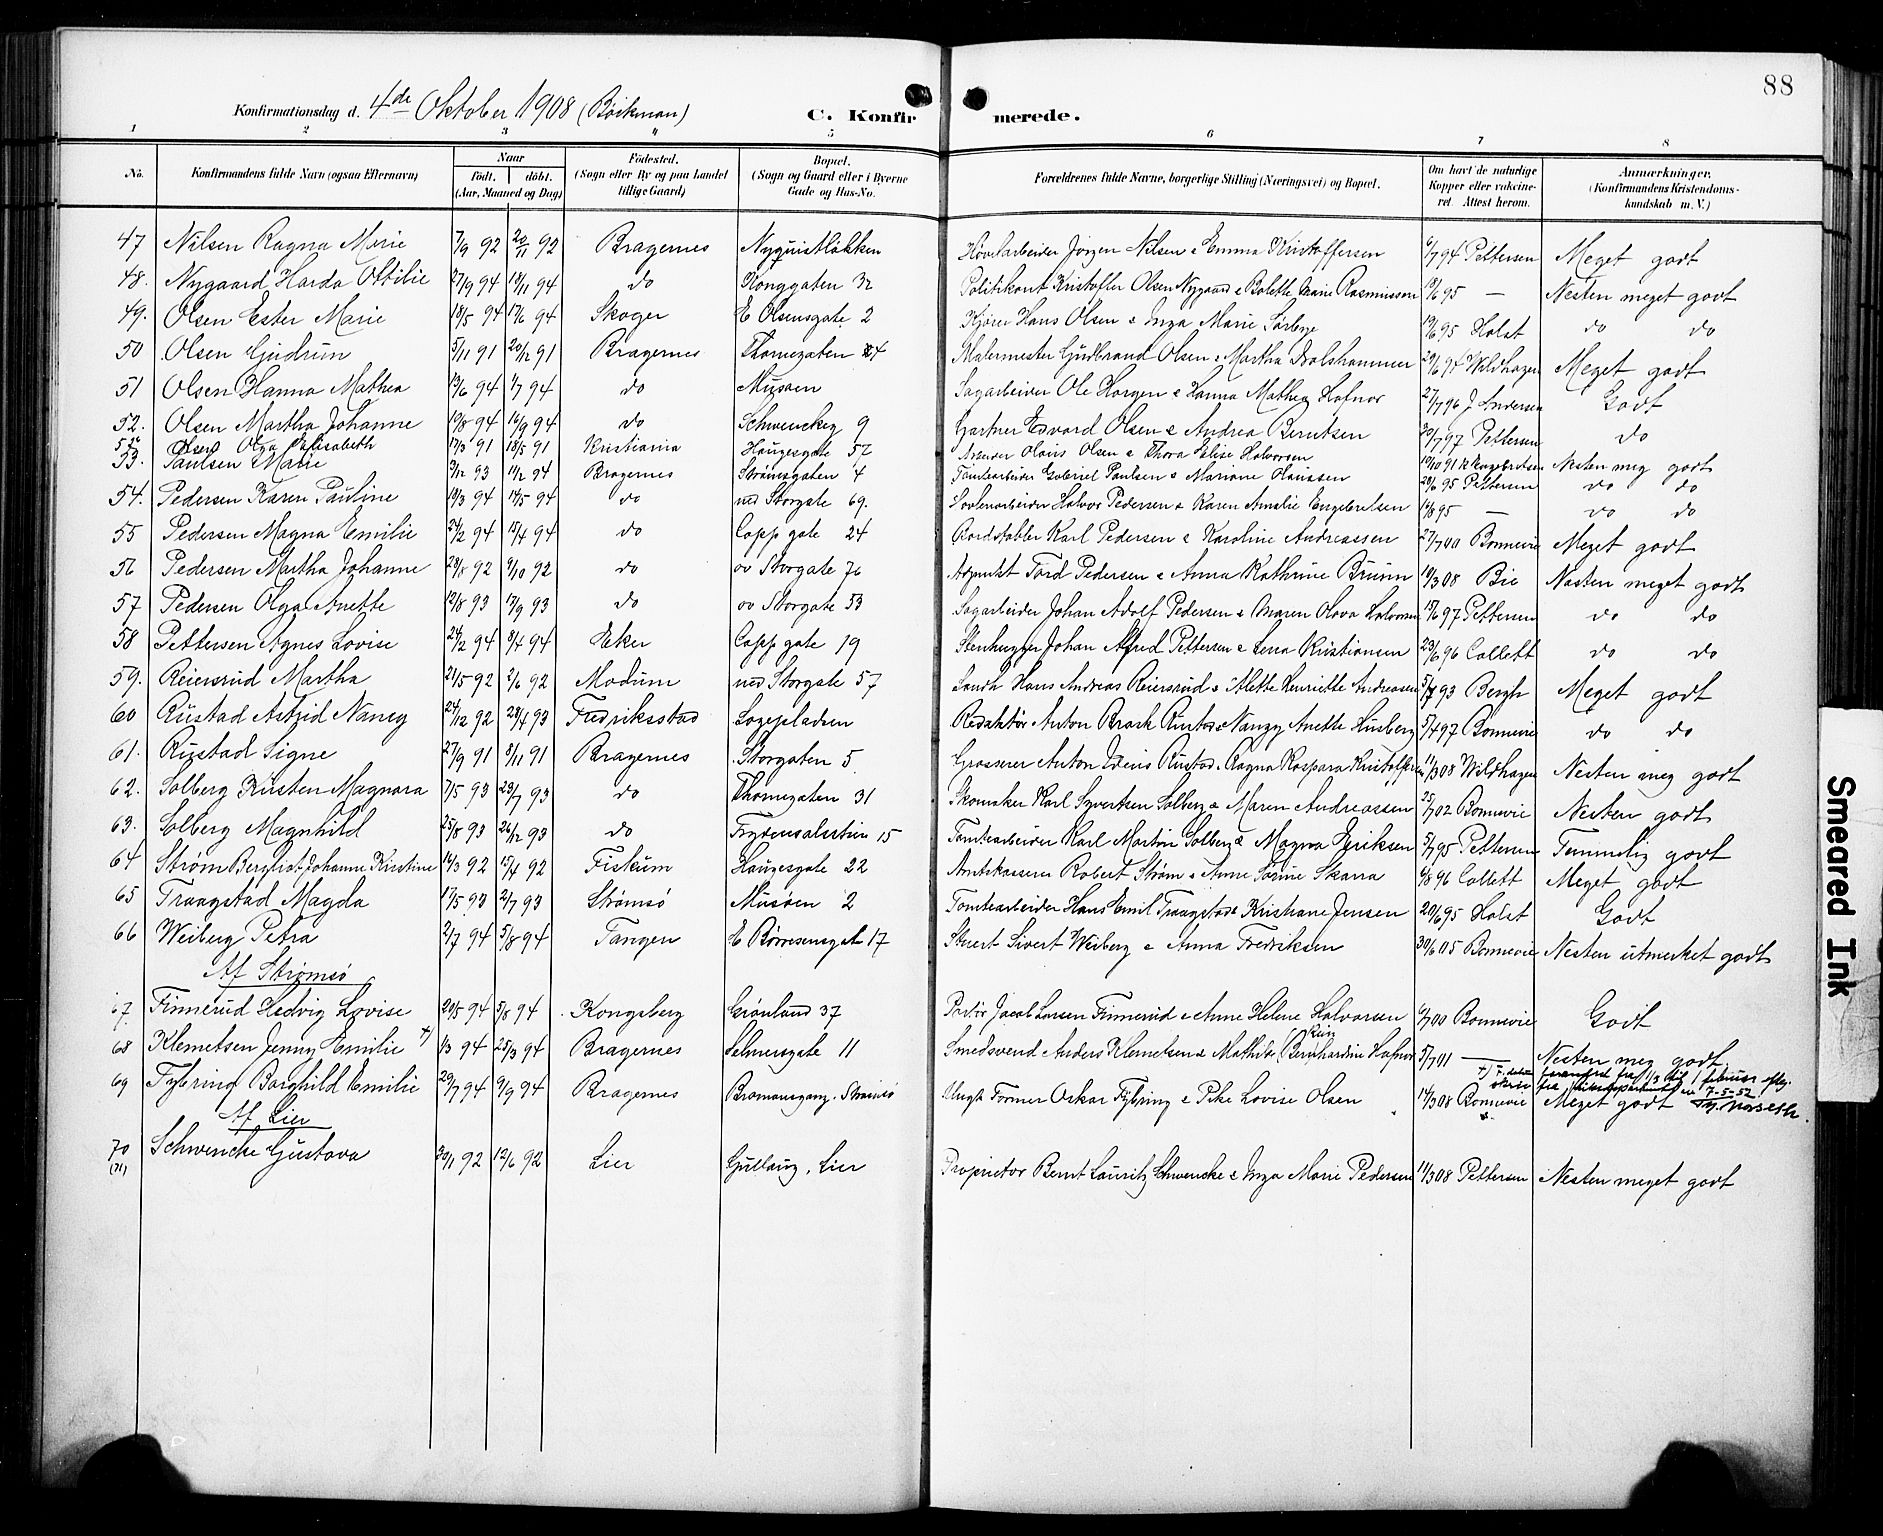 88
Konfirmationsdag d. 4de Oktober 1908 (Böckman) C. Konfirmerede.
1 2 3 4 5 6 7 8
No. Konfirmandens fulde Navn (ogsaa Efternavn) Naar födt. döbt. (Aar, Maaned og Dag) Födested. (Sogn eller By og paa Landet tillige Gaard) Bopæl. (Sogn og Gaard eller i Byerne Gade og Hus-No. Forældrenes fulde Navne, borgerlige Stilling (Næringsvei) og Bopæl. Om havt de naturlige Kopper eller vakcineret. Attest herom. Anmærkninger. (Konfirmandens Kristendomskundskab m. V.)
47 Nilsen Ragna Marie 7/9 92 20/11 92 Bragernes Nyquistløkken Høvlarbeider Jørgen Nilsen & Emma Kristoffersen 6/7 94 Pettersen Meget godt
48. Nygaard Harda Ottilie 27/9 94 18/11 94 do Konggaten 32 Politikonst Kristoffer Olsen Nygaard & Bolette Marie Rasmussen 19/6 95 — Nesten meget godt
49. Olsen Ester Marie 18/5 94 17/6 94 Skoger E Olsensgate 2 Kjører Hans Olsen & Inga Marie Sørbye 19/6 95 Holst do do
50 Olsen Gudrun 5/11 91 20/12 91 Bragernes Thornegaten 24 Malermester Gudbrand Olsen & Martha Wildhagen Meget godt
51 Olsen Hanna Mathea 13/6 94 1/7 94 do Musøen Sagarbeider Ole Horgen & Hanna Mathea Hafnor 27/7 96 J Andersen Godt
52. Olsen Martha Johanne 19/8 94 16/9 94 do Schwenckeg 9 Gartner Edvard Olsen & Andrea Berntsen 30/7 97 Pettersen do
Olsen Olga Elisabeth 17/3 91 18/5 91 Kristiania Haugesgate 57 Olaus Olsen & Thora Elise Halvorsen 19/10 91 Nesten meg godt
53. Paulsen Marie 3/12 93 11/2 94 Bragernes Strømsgaten 4 Tomtearbeider Gabriel Paulsen & Mariane Olaussen 28/6 95 Pettersen do do
54. Pedersen Karen Pauline 13/3 94 14/5 94 do ned Storgate 69. Halvor Pedersen & Karen Amalie Engebretsen 6/8 95 — do do
55 Pedersen Magna Emilie 24/2 94 15/4 94 do Capp gate 24 Bordstabler Karl Pedersen & Karoline Andreassen 27/7 00 Bonnevie Meget godt
56 Pedersen Martha Johanne 23/8 92 9/10 92 do ov Storgate 76 Adjunkt Tord Pedersen & Anna Kathrine Bruun 19/3 08 Bie Nesten meget godt
57 Pedersen Olga Anette 12/8 93 17/9 93 do ov Storgate 53 Sagarbeider Johan Adolf Pedersen & Maren Olava Halvorsen 15/6 97 Pettersen do do
58 Pettersen Agnes Lovise 24/2 94 8/4 94 Eker Capp gate 19 Stenhugger Johan Alfred Pettersen & Lena Kristiansen 23/6 96 Collett do do
59. Reiersrud Martha 21/5 92 2/6 92 Modum ned Storgate 57 Hans Andreas Reiersrud & Alette Henriette Andreasen 5/7 93 Bergh Meget godt
60 Rustad Astrid Nancy 24/12 92 23/4 93 Fredriksstad Logepladsen Redaktør Anton Brask Rustad & Nanzy Anette Husberg 5/4 97 Bonnevie do do
61. Rustad Signe 27/9 91 8/11 91 Bragernes Storgaten 5 Grosserer Anton Rustad & Ragna Kaspara Kristoffersen 11/3 08 Wildhagen Nesten meg godt
62. Solberg Kirsten Magnora 7/5 93 23/7 93 do Thornegaten 31 Skomaker Karl Syvertsen Solberg & Maren Andreassen 25/7 02 Bonnevie Nesten godt
63. Solberg Magnhild 25/8 93 26/12 93 do 15 Tomtearbeider Karl Martin Solberg & Magna Eriksen 5/7 95 Pettersen Temmelig godt
64 Strøm Bergliot Johanne Kristine 14/3 92 15/4 92 Fiskum Haugesgate 22 Amtskasserer Robert Strøm & Anne Sørine Skarra 6/8 96 Collett Meget godt
65 Traagstad Magda 17/5 93 2/7 93 Strømsø Musøen 2 Tomtearbeider Hans Emil Traagstad & Kristiane Jensen 20/6 95 Holst Godt
66 Weiberg Petra 2/7 94 5/8 94 Tangen E Børresensgat 17 Stuert Sivert Weiberg & Anna Fredriksen 30/6 05 Bonnevie Nesten utmerket godt
Af Strømsø
67. Finnerud Hedvig Lovise 20/5 94 5/8 94 Kongsberg Grønland 37 Portør Jacob Larsen Finnerud & Anne Helene Halvorsen 6/7 00 Bonnevie Godt
68 Klemetsen Jenny Emilie +) 1/3 94 25/3 94 Bragernes Selmersgate 11 Smedsvend Anders Klemetsen & Mathilde Bernhardin Hafnor 5/7 01 — Nesten meg godt
+) F. dato forandret fra 1/3 til 1 februar eftg. skriv fra 7-5-52.
69 Fybring Borghild Emilie 29/7 94 9/9 94 Bragernes Bromansgang. Strømsø Ungk Former Oskar Fybring & Pike Lovise Olsen 14/3 08 Bonnevie Meget godt
Af Lier
70 (71) Schwencke Gustava 30/1 92 12/6 92 Lier Gullaug, Lier Proprietær Bernt Lauritz Schwencke & Inga Marie Pedersen 11/3 08 Pettersen Nesten meget godt
Smeared Ink